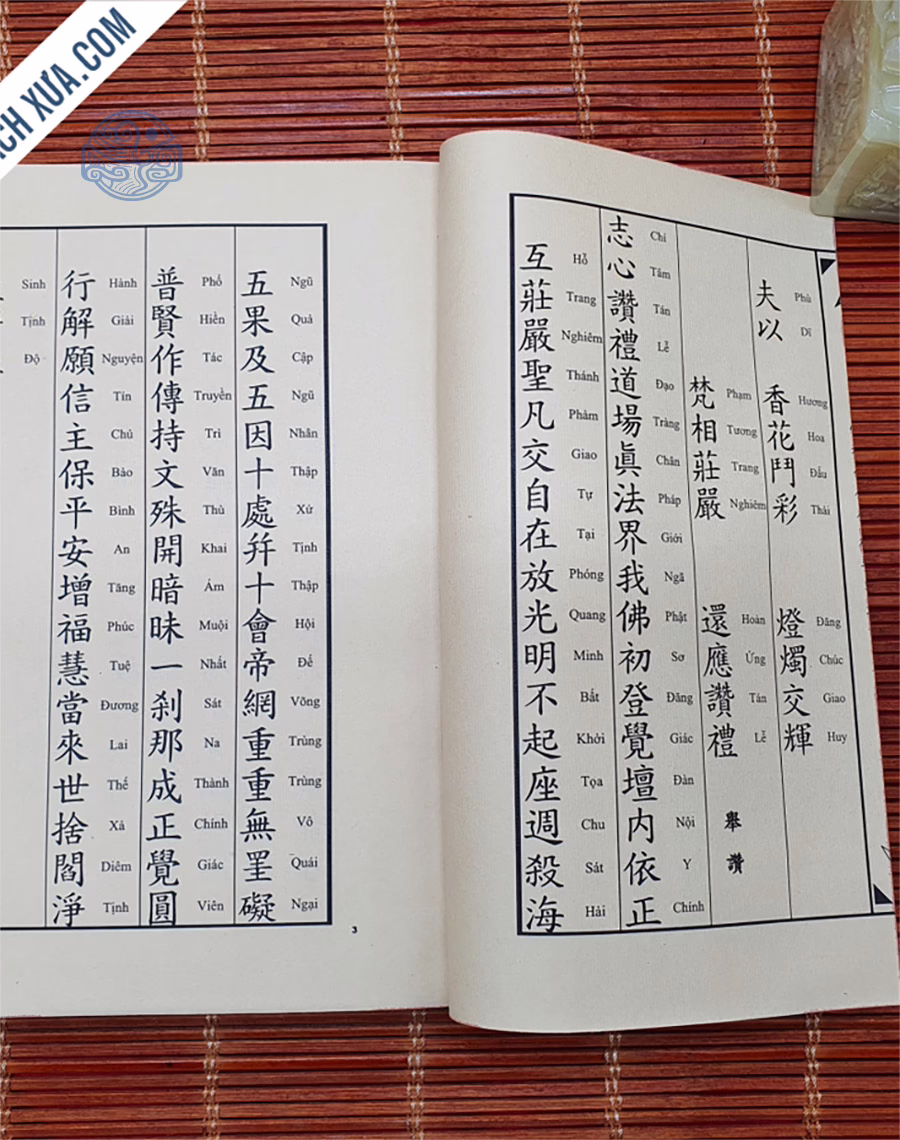 CH XƯA.COM
夫以 香花鬥彩 燈燭交輝
Phù Dĩ Hương Hoa Đấu Thái Đăng Chúc Giao Huy
梵相莊嚴 還應讚禮 舉讚
Phạm Tương Trang Nghiêm Hoàn Ứng Tán Lễ
志心讚禮道場眞法界我佛初登覺壇内依正
Chí Tâm Tán Lễ Đạo Tràng Chân Pháp Giới Ngã Phật Sơ Đăng Giác Đàn Nội Y Chính
互莊嚴聖凡交自在放光明不起座週殺海
Hỗ Trang Nghiêm Thánh Phàm Giao Tự Tại Phóng Quang Minh Bất Khởi Tọa Chu Sát Hải
五果及五因十處幷十會帝網重重無罣礙
Ngũ Quả Cập Ngũ Nhân Thập Xứ Tịnh Thập Hội Đế Võng Trùng Trùng Vô Quái Ngại
普賢作傳持文殊開暗昧一剎那成正覺圓
Phổ Hiền Tác Truyền Trì Văn Thù Khai Ám Muội Nhất Sát Na Thành Chính Giác Viên
行解願信主保平安增福慧當來世捨閻淨
Hành Giải Nguyện Tín Chủ Bảo Bình An Tăng Phúc Tuệ Đương Lai Thế Xả Diêm Tịnh
Sinh Tịnh Độ
3